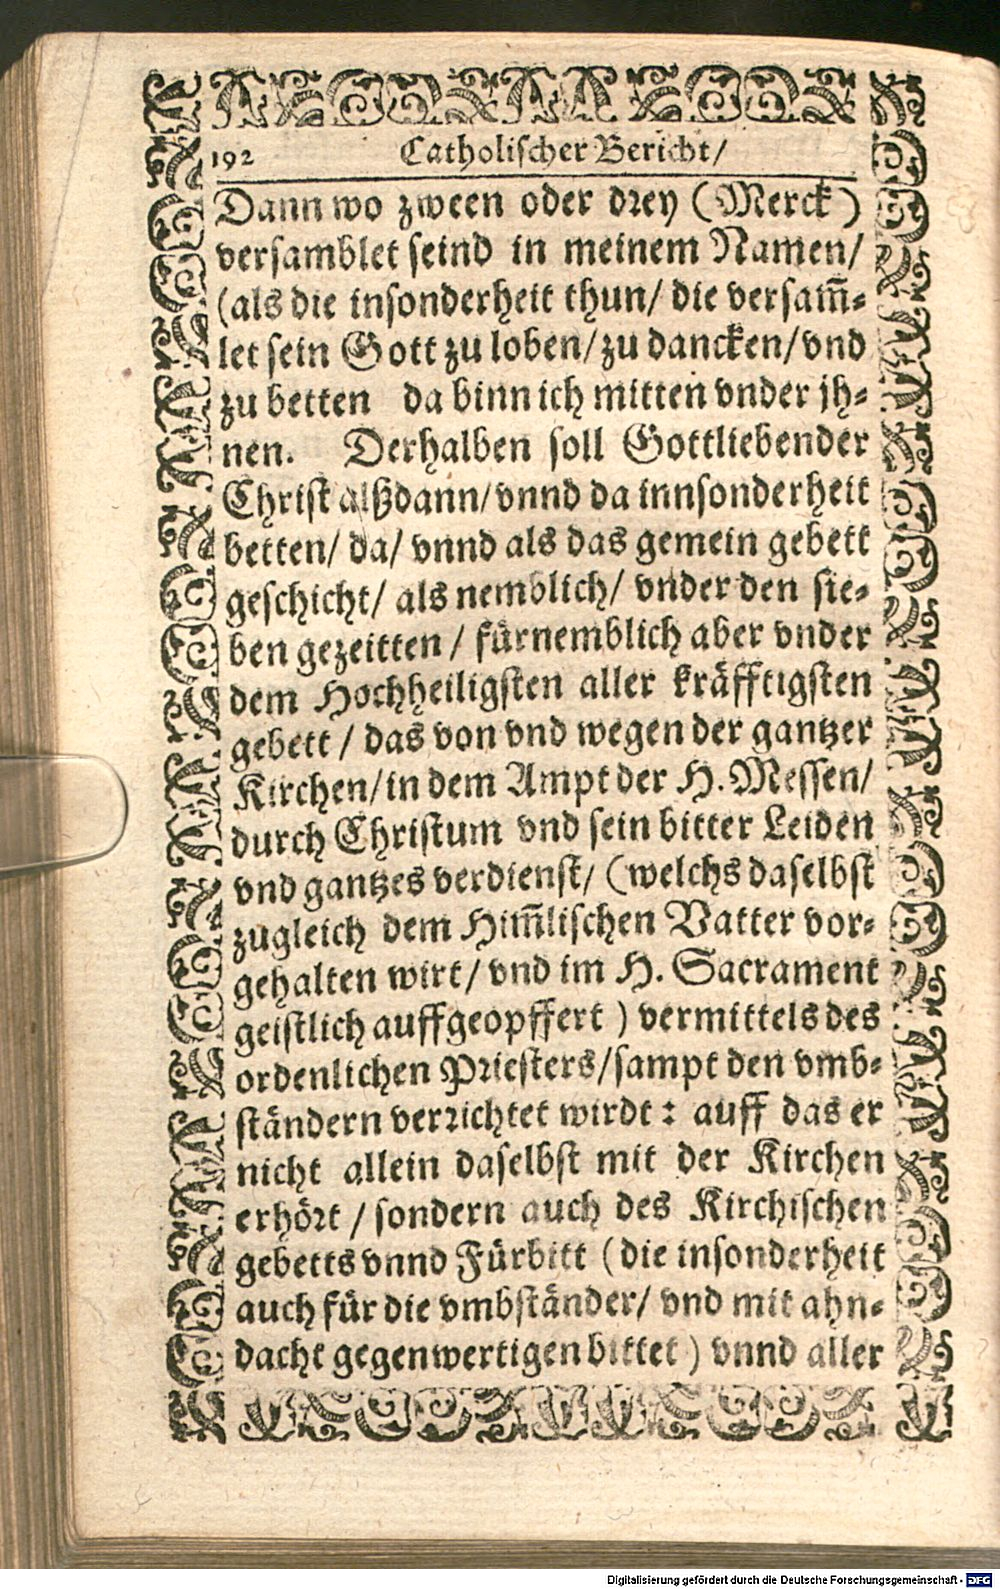 192 Catholischer Bericht/
Dann wo zween oder drey (Merck)
versamblet seind in meinem Namen/
(als die insonderheit thun/ die versam̃-
let sein Gott zu loben/ zu dancken/ vnd
zu betten da binn ich mitten vnder jh-
nen. Derhalben soll Gottliebender
Christ alßdann/ vnnd da innsonderheit
betten/ da/ vnnd als das gemein gebett
geschicht/ als nemblich/ vnder den sie-
ben gezeitten / fürnemblich aber vnder
dem Hochheiligsten aller kräfftigsten
gebett / das von vnd wegen der gantzer
Kirchen/ in dem Ampt der H. Messen/
durch Christum vnd sein bitter Leiden
vnd gantzes verdienst/ (welchs daselbst
zugleich dem Him̃lischen Vatter vor-
gehalten wirt/ vnd im H. Sacrament
geistlich auffgeopffert ) vermittels des
ordenlichen Priesters/ sampt den vmb-
ständern verrichtet wirdt : auff das er
nicht allein daselbst mit der Kirchen
erhört / sondern auch des Kirchischen
gebetts vnnd Fürbitt (die insonderheit
auch für die vmbständer/ vnd mit ahn-
dacht gegenwertigen bittet ) vnnd aller
Digitalisierung gefördert durch die Deutsche Forschungsgemeinschaft - DFG